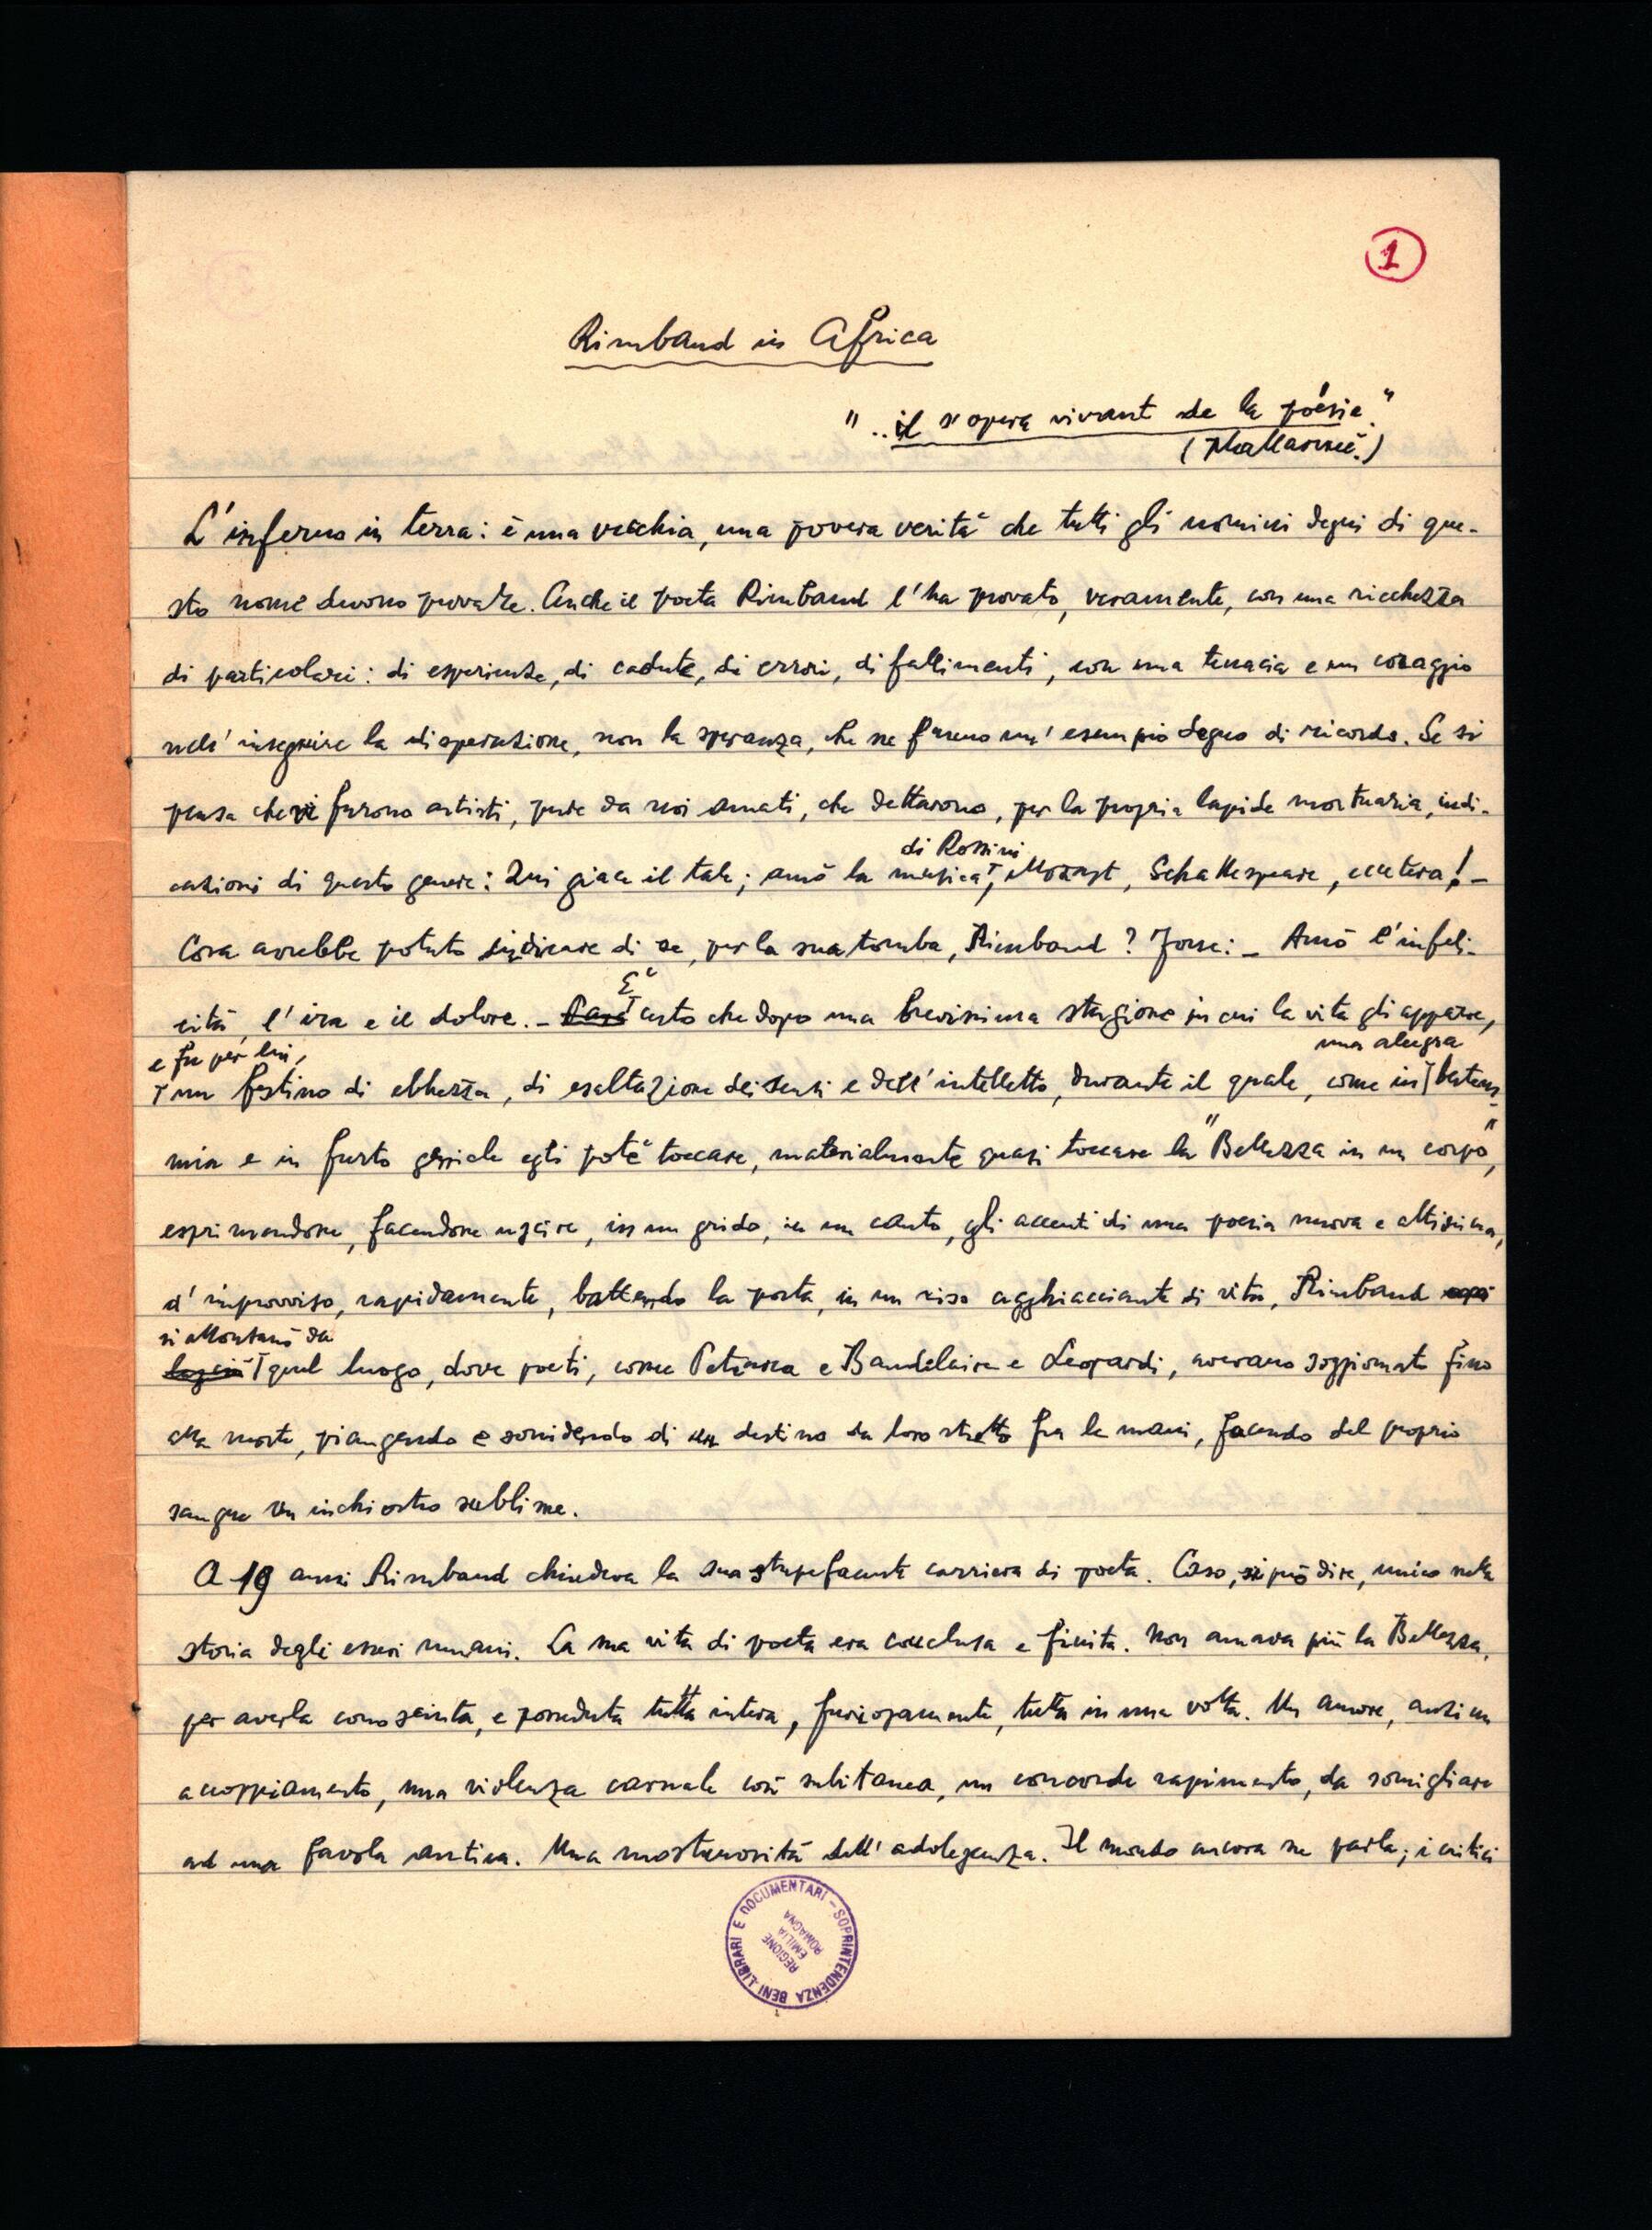 1
Rimbaud in Africa
"..il s'opera vivant de la poésie."
(Mallarmé.)
L'inferno in terra: è una vecchia, una povera verità che tutti gli uomini degni di que-
sto nome devono provare. Anche il poeta Rimbaud l'ha provato, veramente, con una ricchezza
di particolari: di esperienze, di cadute, di errori, di fallimenti, con una tenacia e un coraggio
nell'inseguire la disperazione, non la speranza, che ne fanno un'esempio degno di ricordo. Se si
pensa che vi furono artisti, pure da noi amati, che dettarono, per la propria lapide mortuaria, indi-
di Rossini
cazioni di questo genere: Qui giace il tale; amò la musica, Mozart, Schakespeare, eccetera! –
Cosa avrebbe potuto indicare di se, per la sua tomba, Rimbaud? Forse: – Amò l'infeli-
E'
cità, l'ira e il dolore. – certo che dopo una brevissima stagione in cui la vita gli apparse,
e fu per lui,
una allegra
un festino di ebbrezza, di esaltazione dei sensi e dell'intelletto, durante il quale, come in bestem-
mia e in furto geniale egli potè toccare, materialmente quasi toccare la "Bellezza in un corpo",
esprimendone, facendone uscire, in un grido, in un canto, gli accenti di una poesia nuova e altissima,
d'improvviso, rapidamente, battendo la porta, in un riso agghiacciante di vita, Rimbaud
si allontanò da
lasciò quel luogo, dove poeti, come Petrarca e Baudelaire e Leopardi, avevano soggiornato fino
alla morte, piangendo e sorridendo di un destino da loro stretto fra le mani, facendo del proprio
sangue un inchiostro sublime.
A 19 anni Rimbaud chiudeva la sua stupefacente carriera di poeta. Caso, si può dire, unico nella
storia degli esseri umani. La sua vita di poeta era conclusa e finita. Non amava più la Bellezza,
per averla conosciuta, e posseduta tutta intera, furiosamente, tutta in una volta. Un amore, anzi un
accoppiamento, una violenza carnale così subitanea, un concorde rapimento, da somigliare
ad una favola antica. Una mostruosità dell'adolescenza. Il mondo ancora ne parla; i critici
SOPRINTENDENZA BENI LIBRARI E DOCUMENTARI –
REGIONE
EMILIA
ROMAGNA